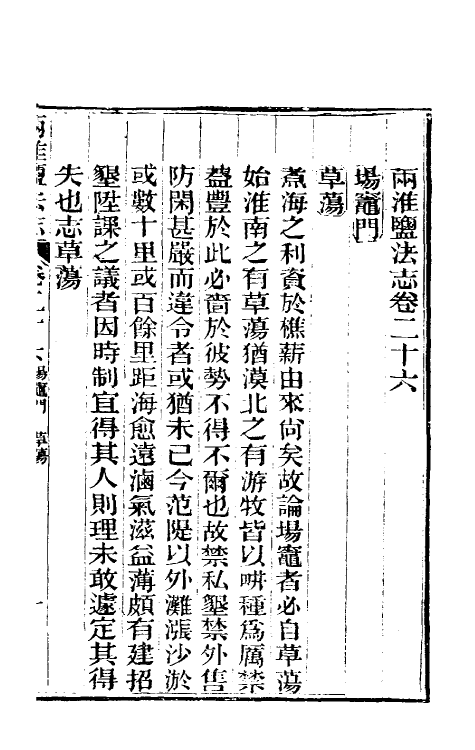 兩淮鹽法志卷二十六
場竈門
草蕩
煮海之利資於樵薪由來尙矣故論場竈者必自草蕩
始淮南之有草蕩猶漠北之有游牧皆以畊種爲厲禁
葢豐於此必嗇於彼勢不得不爾也故禁私墾禁外售
防閑甚嚴而違令者或猶未已今范隄以外灘漲沙淤
或數十里或百餘里距海愈遠滷氣滋益薄頗有建招
墾陞課之議者因時制宜得其人則理未敢遽定其得
失也志草蕩
兩淮鹽法志 卷二十六 場竈門 草蕩 一